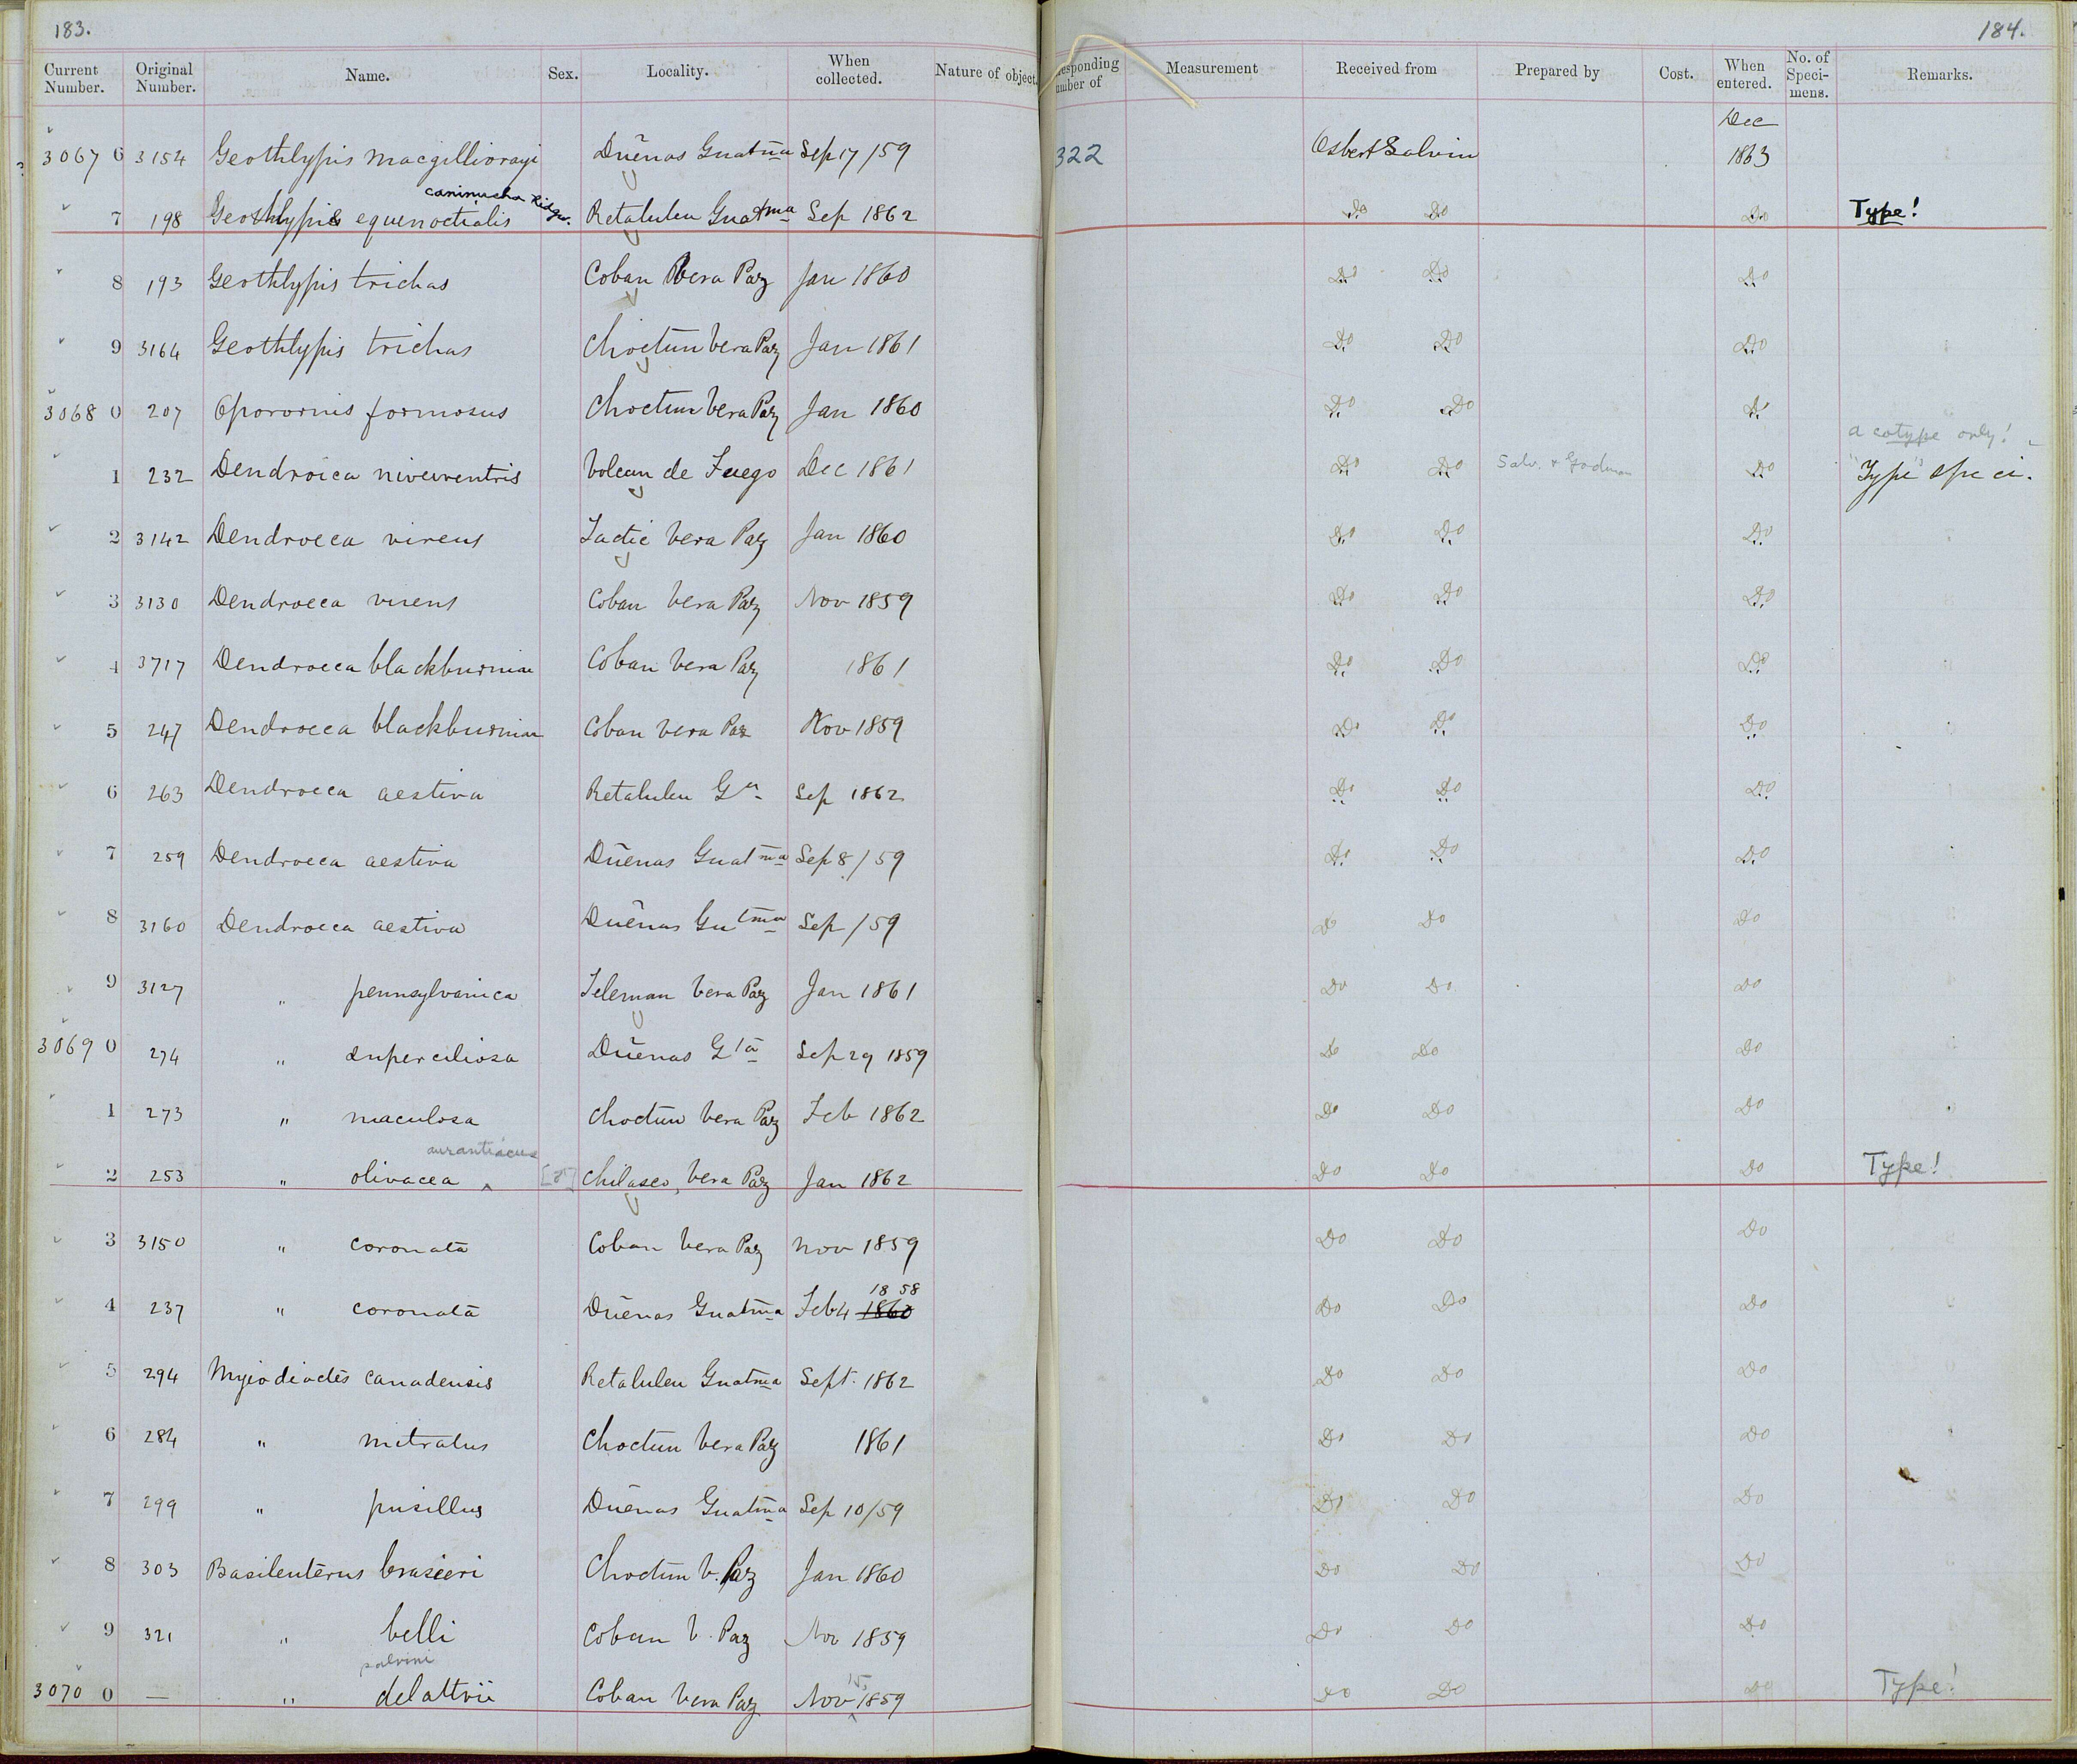 183. 184.
Current Number. Original Number. Name. Sex. Locality. When collected. Nature of object. esponding umber of Measurement Received from Prepared by Cost. When entered. No. of Speci- mens. Remarks.
Dec
3067 6 3154 Geothlypis macgillivrayi Duēnas Guatma Sep 17/59 322 Osbert Salvin 1863
caninucha Ridgw.
7 198 Geothlypis equinoctialis Retaluleu Guatma Sep 1862 Do Do Do Type!
8 193 Geothlypis trichas Coban Vera Paz Jan 1860 Do Do Do
9 3164 Geothlypis trichas Choctun Vera Paz Jan 1861 Do Do Do
3068 0 207 Oporornis formosus Choctun Vera Paz Jan 1860 Do Do Do
a cotype only!
1 232 Dendroica niveiventris Volcan de Fuego Dec 1861 Do Do Salv. & Godman Do "Type" speci.
2 3142 Dendroeca virens Tactic Vera Paz Jan 1860 Do Do Do
3 3130 Dendroeca virens Coban Vera Paz Nov 1859 Do Do Do
4 3717 Dendroeca blackburniae Coban Vera Paz 1861 Do Do Do
5 247 Dendroeca blackburniae Coban Vera Paz Nov 1859 Do Do Do
6 263 Dendroeca aestiva Retaluleu Ga Sep 1862 Do Do Do
7 259 Dendroeca aestiva Duēnas Guatma Sep 8/59 Do Do Do
8 3160 Dendroeca aestiva Duēnas Guatma Sep /59 Do Do Do
9 3127 " pennsylvanica Teleman Vera Paz Jan 1861 Do Do Do
3069 0 274 " superciliosa Duēnas Gta Sep 29 1859 Do Do Do
1 273 " maculosa Choctun Vera Paz Feb 1862 Do Do Do
aurantiacus
2 253 " olivacea ^ [♂] Chilasco, Vera Paz Jan 1862 Do Do Do Type!
3 3150 " coronata Coban Vera Paz Nov 1859 Do Do Do
1858
4 237 " coronata Duēnas Guatma Feb 4 1860 Do Do Do
5 294 Myiodioctes canadensis Retaluleu Guatma Sept. 1862 Do Do Do
6 284 " mitratus Choctun Vera Paz 1861 Do Do Do
7 299 " pusillus Duēnas Guatma Sep 10/59 Do Do Do
8 303 Basileuterus brasieri Choctun V. Paz Jan 1860 Do Do Do
9 321 " belli Coban V. Paz Nov 1859 Do Do Do
salvini 15,
3070 0 — " delattrii Coban Vera Paz Nov ^ 1859 Do Do Do Type!